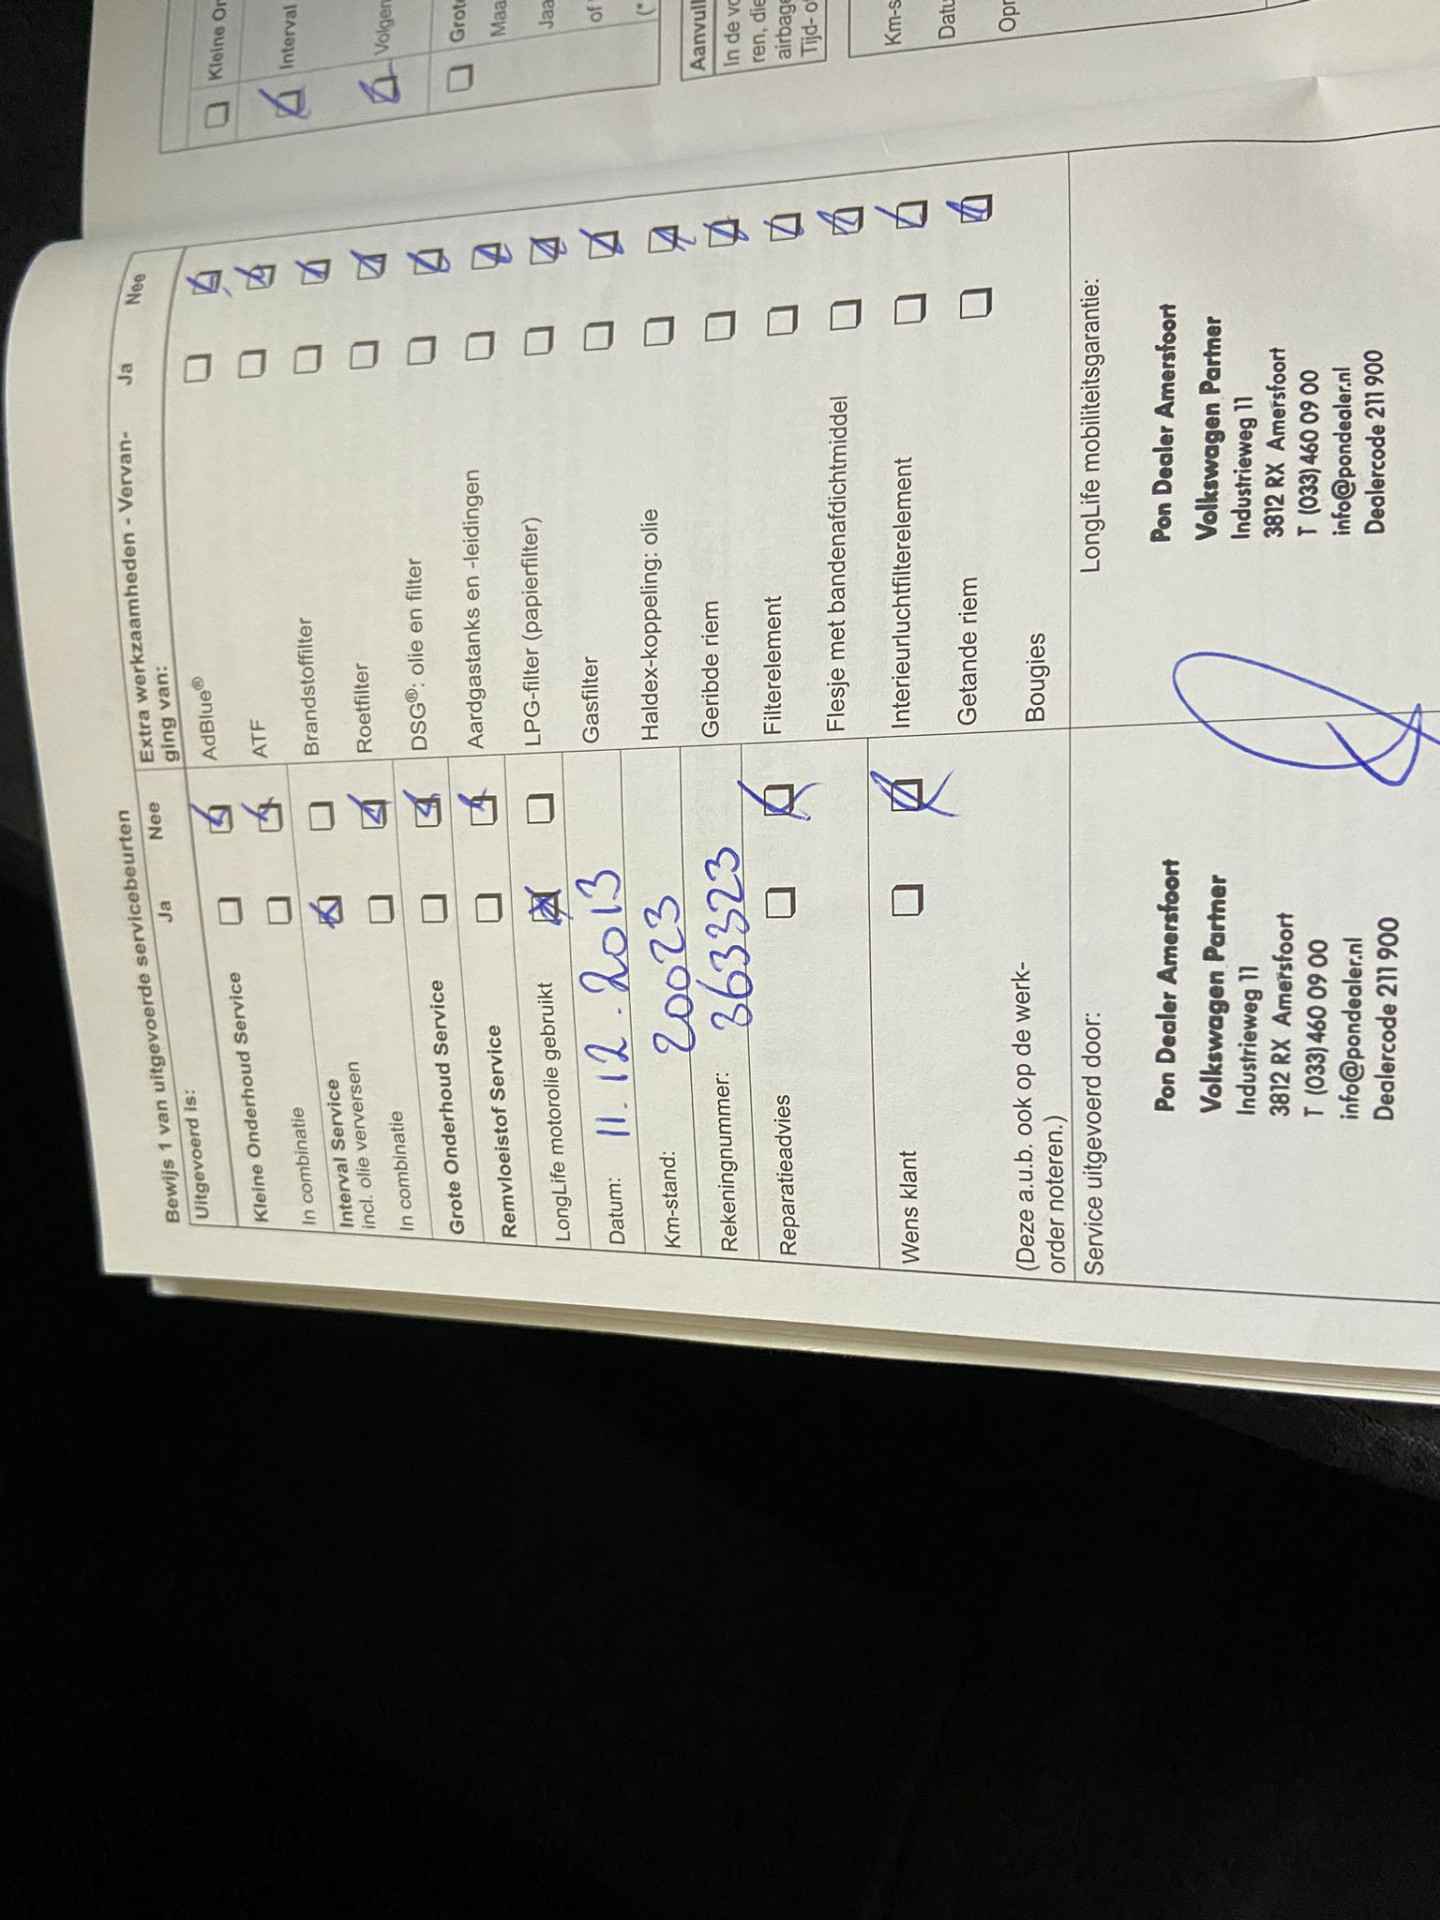 Bewijs 1 van uitgevoerde servicebeurten
Uitgevoerd is: Ja Nee
Kleine Onderhoud Service
In combinatie
Interval Service
incl. olie verversen
In combinatie
Grote Onderhoud Service
Remvloeistof Service
LongLife motorolie gebruikt
Datum: 11.12.2013
Km-stand: 20023
Rekeningnummer: 363323
Reparatieadvies
Wens klant
(Deze a.u.b. ook op de werk-
order noteren.)
Service uitgevoerd door:
Pon Dealer Amersfoort
Volkswagen Partner
Industrieweg 11
3812 RX Amersfoort
T (033) 460 09 00
info@pondealer.nl
Dealercode 211 900
Extra werkzaamheden - Vervan-
ging van: Ja Nee
AdBlue®
ATF
Brandstoffilter
Roetfilter
DSG®: olie en filter
Aardgastanks en -leidingen
LPG-filter (papierfilter)
Gasfilter
Haldex-koppeling: olie
Geribde riem
Filterelement
Flesje met bandenafdichtmiddel
Interieurluchtfilterelement
Getande riem
Bougies
LongLife mobiliteitsgarantie:
Pon Dealer Amersfoort
Volkswagen Partner
Industrieweg 11
3812 RX Amersfoort
T (033) 460 09 00
info@pondealer.nl
Dealercode 211 900
Kleine On
Interval
Volgen
Grote
Maa
Jaa
of
(*
Aanvull
In de vo
ren, die
airbage
Tijd- o
Km-s
Datu
Opr